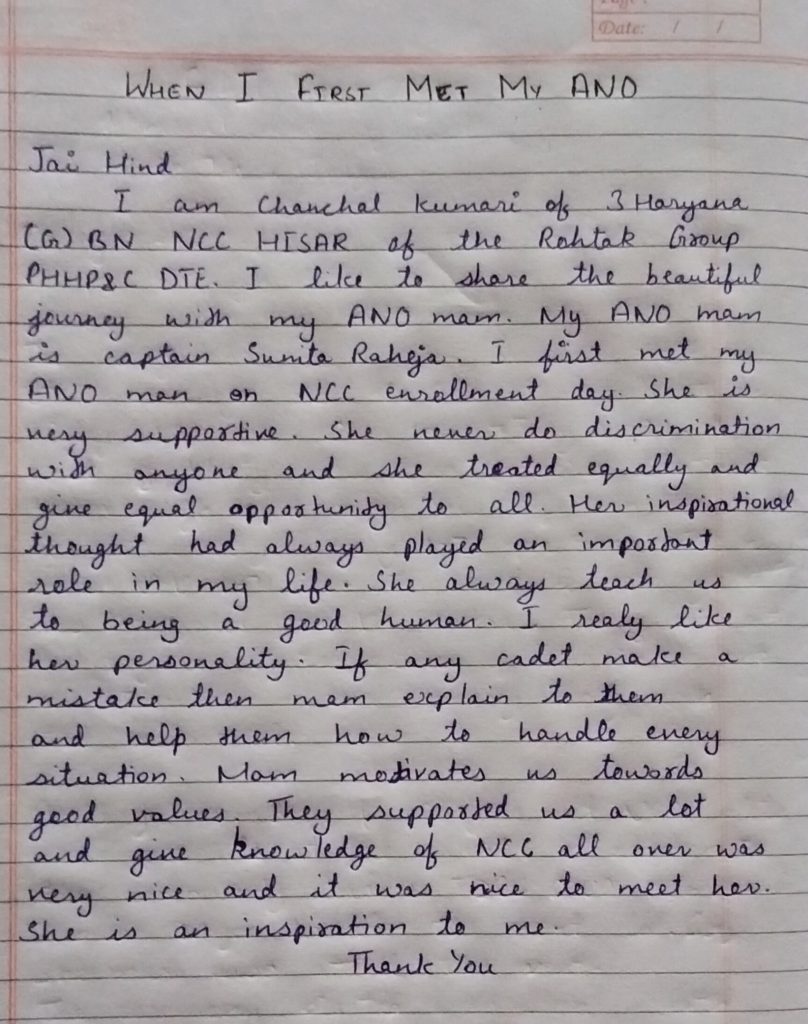 Date: / /
WHEN I FIRST MET MY ANO
Jai Hind
I am Chanchal Kumari of 3 Haryana
(G) BN NCC HISAR of the Rohtak Group
PHHP&C DTE. I like to share the beautiful
journey with my ANO mam. My ANO mam
is captain Sunita Raheja. I first met my
ANO man on NCC enrollment day. She is
very supportive. She never do discrimination
with anyone and she treated equally and
give equal opportunity to all. Her inspirational
thought had always played an important
role in my life. She always teach us
to being a good human. I realy like
her personality. If any cadet make a
mistake then mam explain to them
and help them how to handle every
situation. Mam motivates us towards
good values. They supported us a lot
and give knowledge of NCC all over was
very nice and it was nice to meet her.
She is an inspiration to me.
Thank You